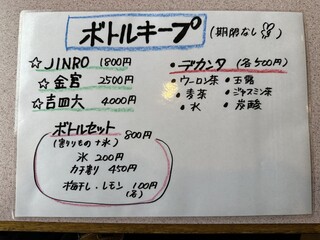 ボトルキープ (期限なし)
☆JINRO 1800円
☆金宮 2500円
☆吉四六 4000円
・デカンタ (各500円)
・ウーロン茶 ・玉露
・麦茶 ・ジャスミン茶
・水 ・炭酸
ボトルセット 800円
(割りもの+氷)
氷 200円
カチ割り 450円
梅干し・レモン 100円
(各)